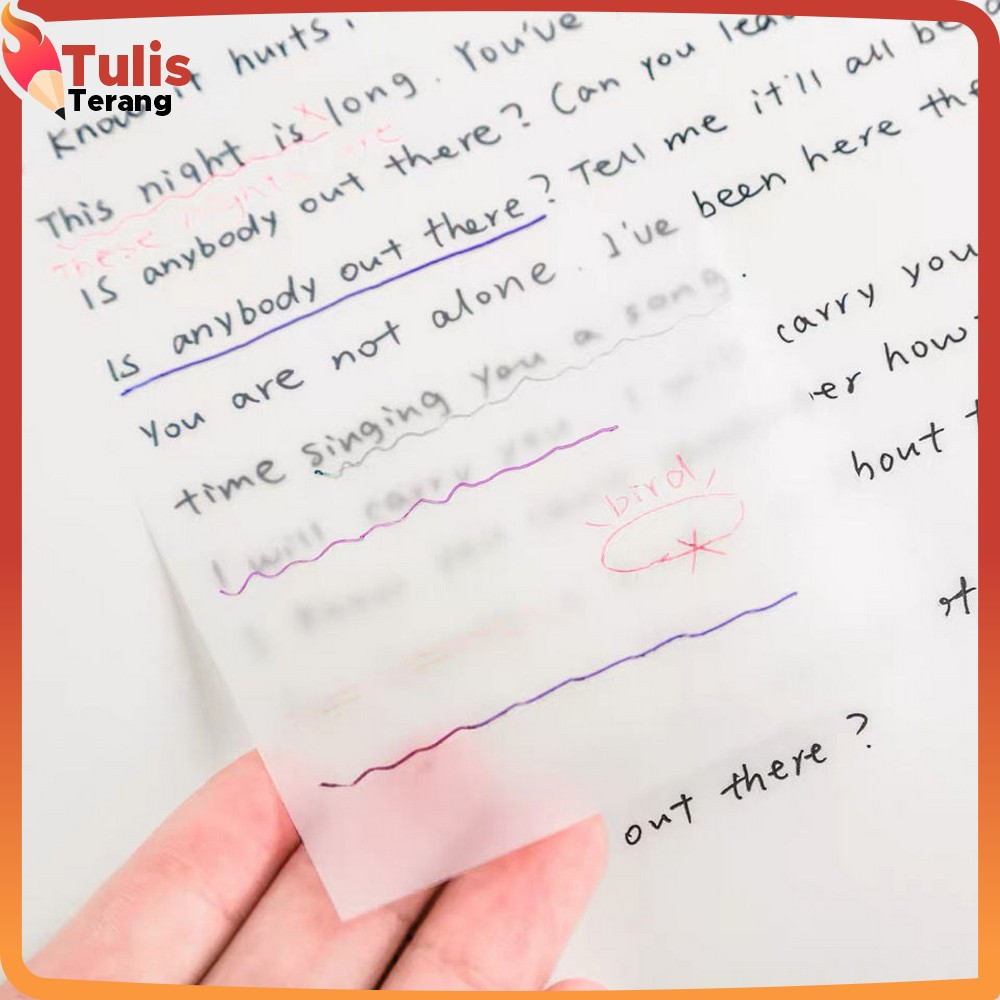 Tulis
Terang
Know it hurts,
This night is long. You've
These nights are
Is anybody out there? Can you
Is anybody out there? Tell me it'll all be
You are not alone. I've been here the
time singing you a song.
I will carry you I will carry you
I know you er how
bout
bird
out there?